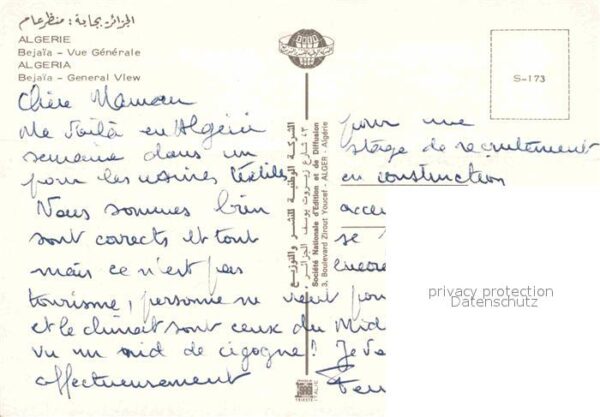 الجزائر. بجاية: منظر عام
ALGERIE
Bejaïa – Vue Générale
ALGERIA
Bejaïa – General View
S-173
Chère Maman
Me voilà en Algérie pour une
semaine dans un stage de recrutement
pour les usines textiles en construction
Nous sommes bien
sont corrects et tout se
mais ce n'est pas encore
tourisme, personne ne veut
et le climat sont ceux du Midi
vu un nid de cigogne! Je
affectueusement
الشركة الوطنية للنشر والتوزيع
٤٣ شارع زيروت يوسف الجزائر
Société Nationale d'Edition et de Diffusion
3, Boulevard Zirout Youcef - ALGER - Algérie
privacy protection
Datenschutz